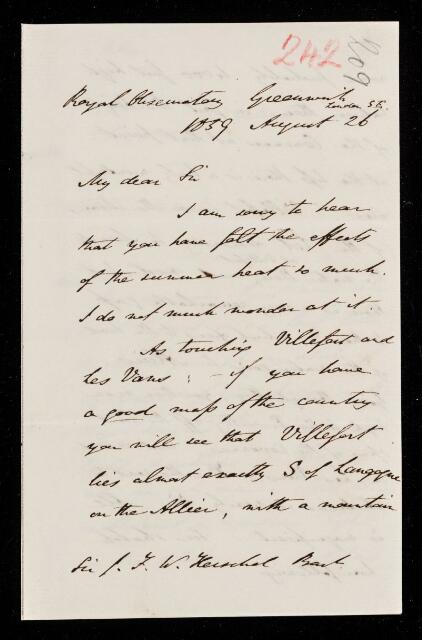 242
209
Royal Observatory Greenwich
London S.E.
1859 August 26
My dear Sir
I am sorry to hear
that you have felt the effects
of the summer heat so much.
I do not much wonder at it.
As touching Villefort and
Les Vans: - if you have
a good map of the country
you will see that Villefort
lies almost exactly S of Langogne
on the Allier, with a mountain
Sir J. F. W. Herschel Bart